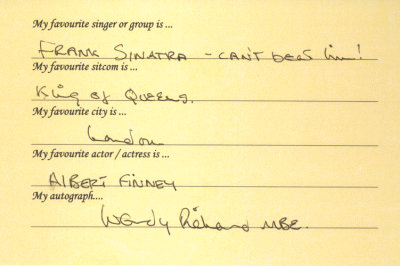 My favourite singer or group is ...
FRANK SINATRA - CAN'T beat him!
My favourite sitcom is ...
King of Queens.
My favourite city is ...
London
My favourite actor / actress is ...
ALBERT FINNEY
My autograph....
Wendy Richard MBE.